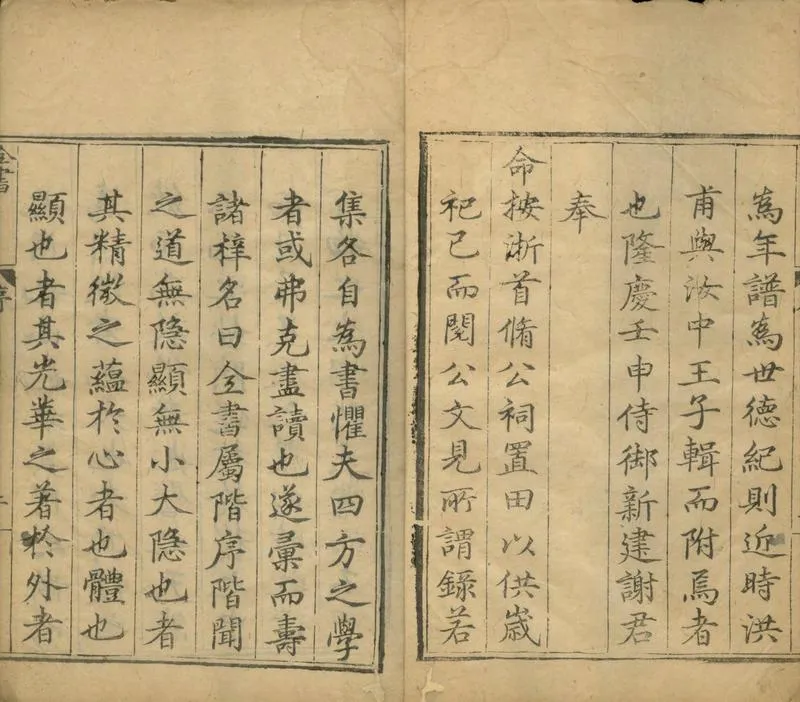 為年譜為世德紀則近時洪
甫與汝中王子輯而附焉者
也隆慶壬申侍御新建謝君
奉
命按浙首脩公祠置田以供歲
祀已而閱公文見所謂錄若
集各自為書懼夫四方之學
者或弗克盡讀也遂彙而壽
諸梓名曰全書屬階序階聞
之道無隱顯無小大隱也者
其精微之蘊於心者也體也
顯也者其光華之著於外者
全書
序